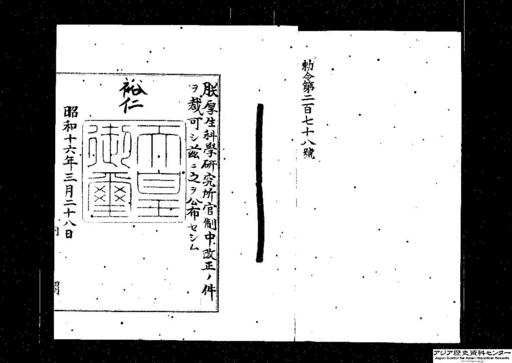 勅令第二百七十八號
朕厚生科學硏究所官制中改正ノ件
ヲ裁可シ茲ニ之ヲ公布セシム
裕仁
天皇
御璽
昭和十六年三月二十八日
アジア歴史資料センター
Japan Center for Asian Historical Records